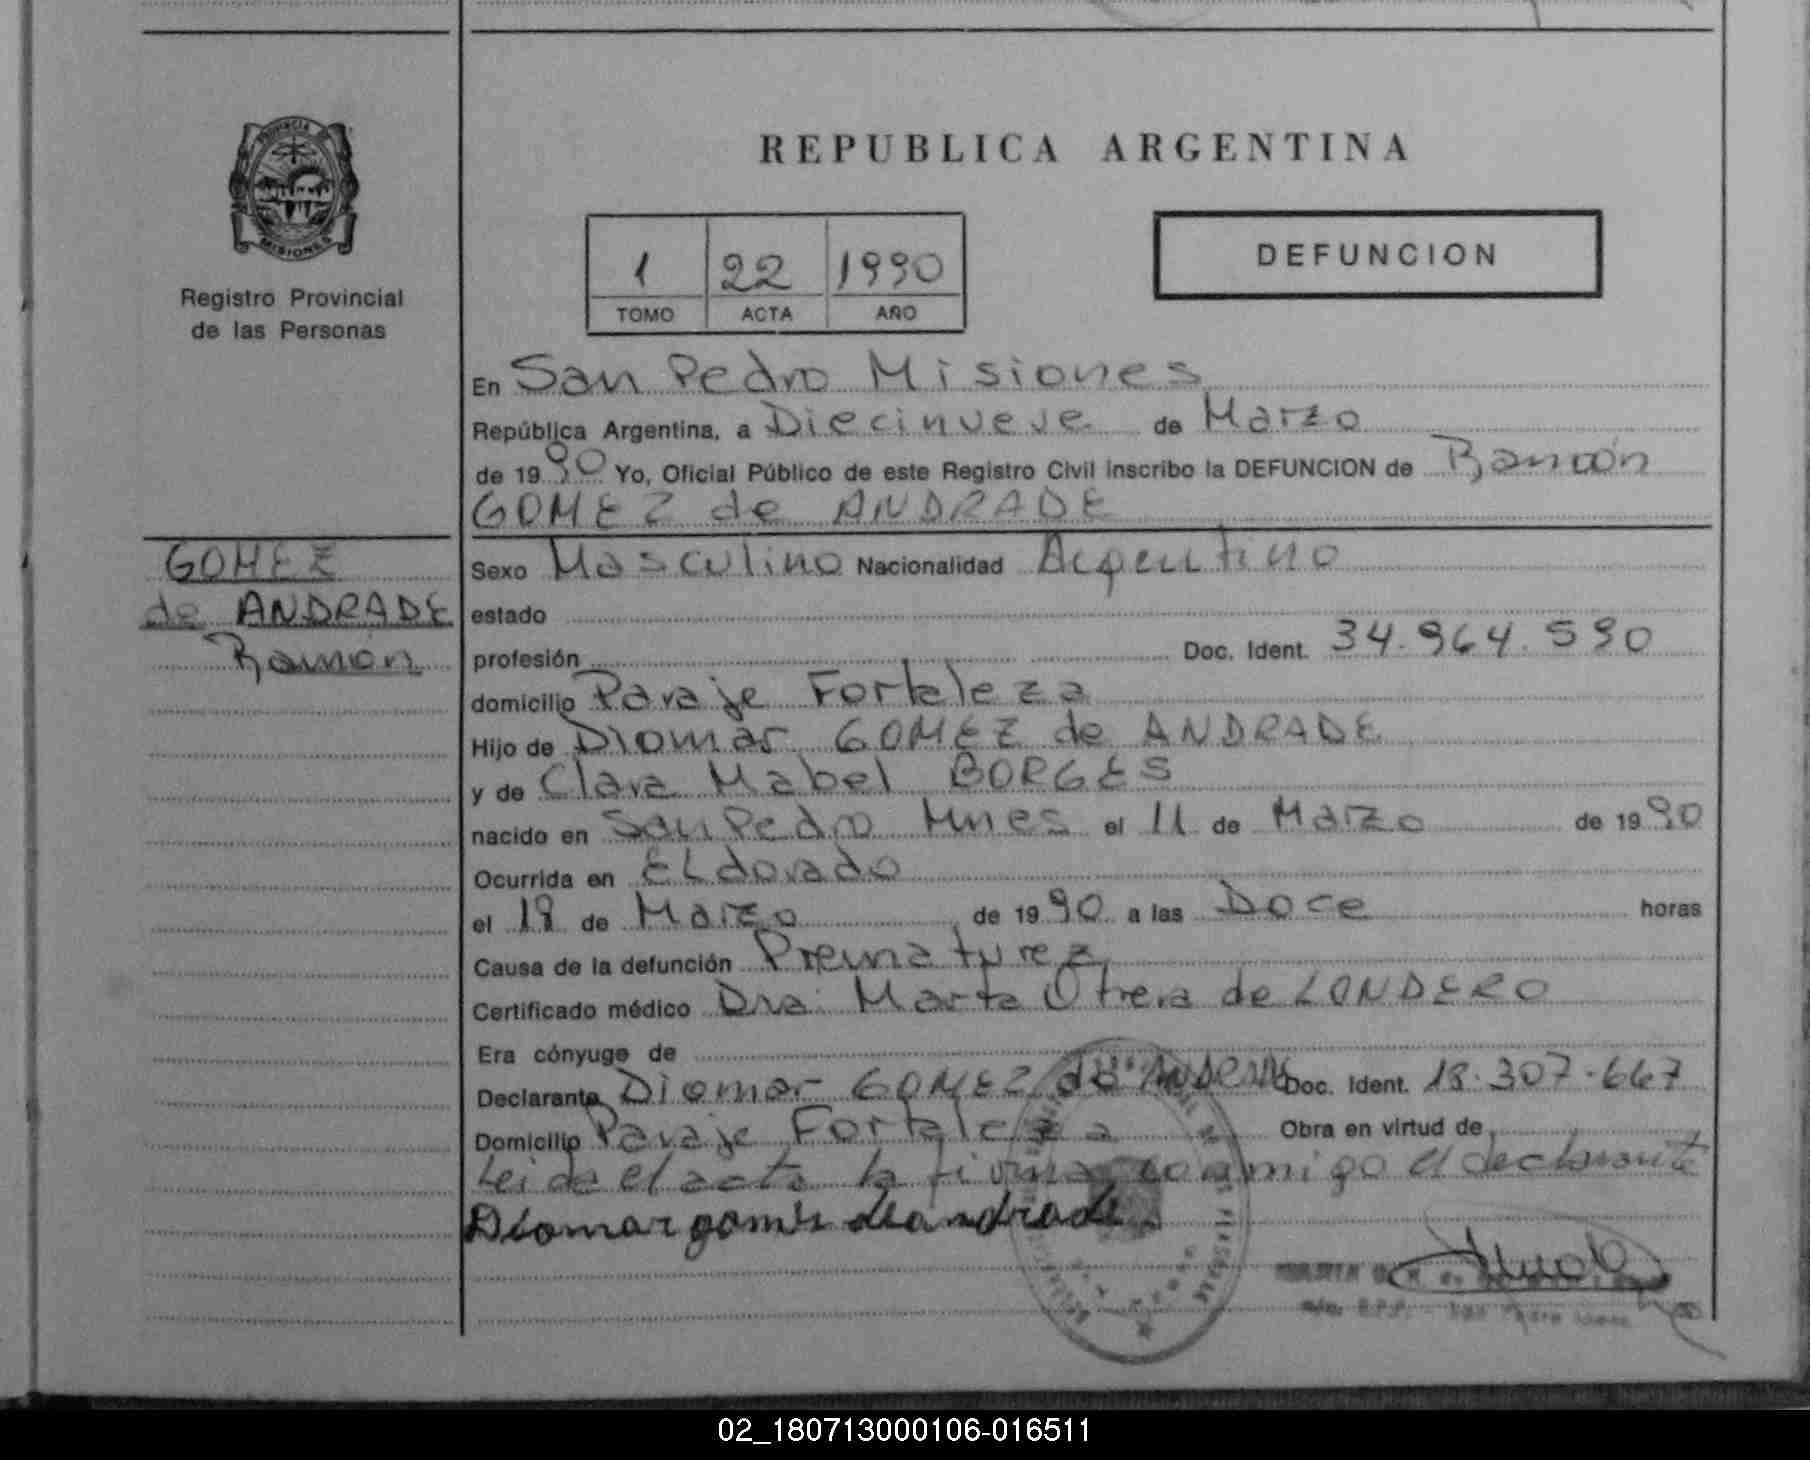 PROVINCIA DE
MISIONES
Registro Provincial
de las Personas
REPUBLICA ARGENTINA
1 22 1990
TOMO ACTA AÑO
DEFUNCION
En San Pedro Misiones
República Argentina, a Diecinueve de Marzo
de 1990 Yo, Oficial Público de este Registro Civil inscribo la DEFUNCION de Ramón
GOMEZ de ANDRADE
GOMEZ
de ANDRADE
Ramón
Sexo Masculino Nacionalidad Argentino
estado
profesión Doc. Ident. 34.964.590
domicilio Paraje Fortaleza
Hijo de Diomar GOMEZ de ANDRADE
y de Clara Mabel BORGES
nacido en San Pedro Mnes el 11 de Marzo de 1990
Ocurrida en ELdorado
el 18 de Marzo de 1990 a las Doce horas
Causa de la defunción Prematurez
Certificado médico Dra. Marta Otrera de LONDERO
Era cónyuge de
Declarante Diomar GOMEZ de ANDRADE Doc. Ident. 18.307.667
Domicilio Paraje Fortaleza Obra en virtud de
Leida el acta la firma conmigo el declarante
Diomar gomes deandrade
02_180713000106-016511